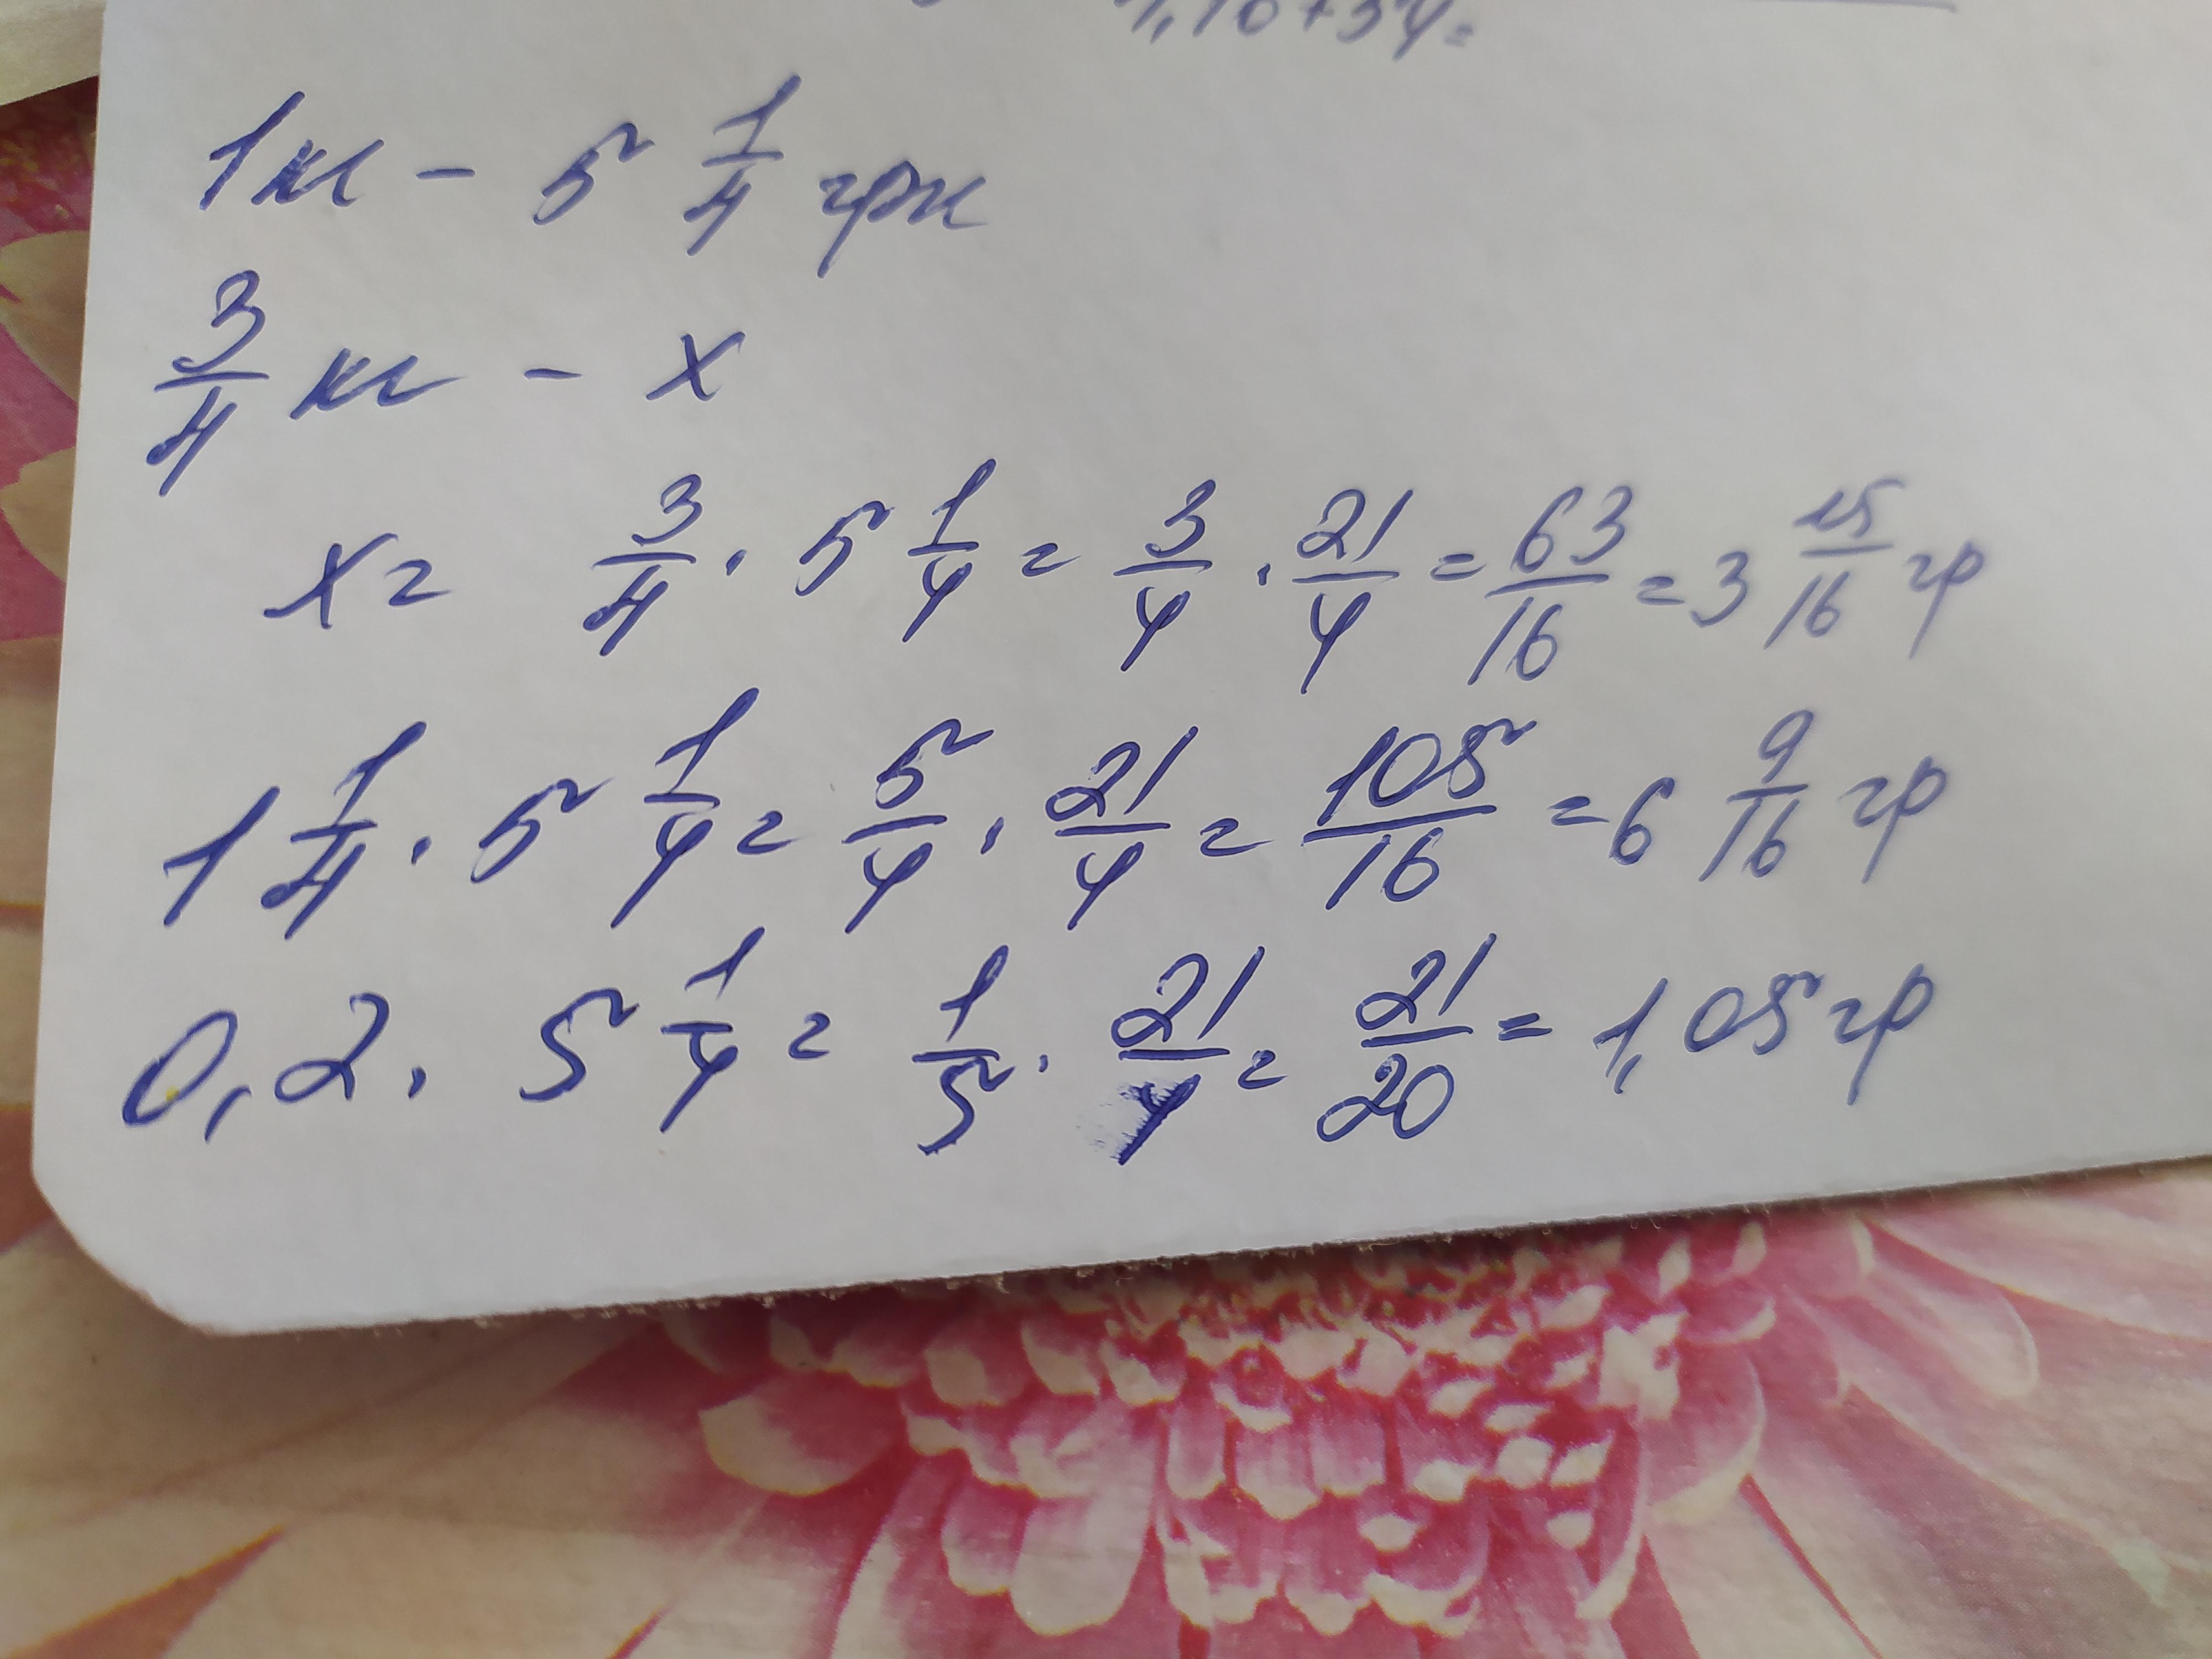 1,10+3y=
1кг - 5 1/4 грн
3/4 кг - x
x = 3/4 · 5 1/4 = 3/4 · 21/4 = 63/16 = 3 15/16 гр
1 1/4 · 5 1/4 = 5/4 · 21/4 = 105/16 = 6 9/16 гр
0,2 · 5 1/4 = 1/5 · 21/4 = 21/20 = 1,05 гр